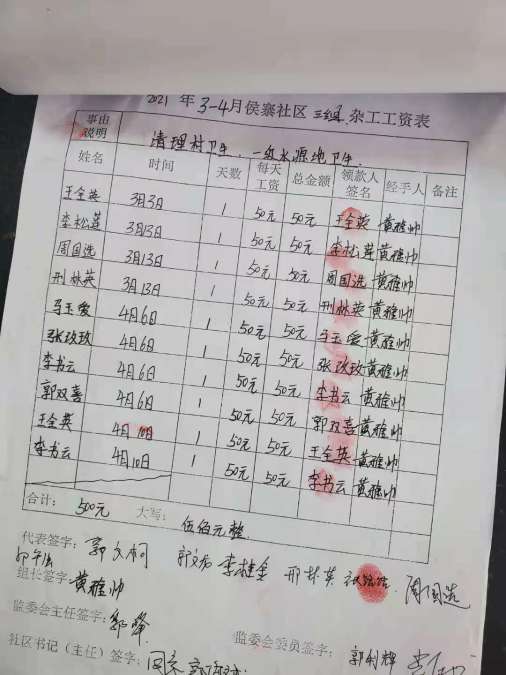 2021 年 3-4月侯寨社区 三组 杂工工资表
事由说明 清理村卫生、一级水源地卫生.
姓名 时间 天数 每天工资 总金额 领款人签名 经手人 备注
王全英 3月3日 1 50元 50元 王全英 黄雅帅
李松莲 3月3日 1 50元 50元 李松莲 黄雅帅
周国选 3月13日 1 50元 50元 周国选 黄雅帅
刑林英 3月13日 1 50元 50元 刑林英 黄雅帅
马玉爱 4月6日 1 50元 50元 马玉爱 黄雅帅
张玫玫 4月6日 1 50元 50元 张玫玫 黄雅帅
李书云 4月6日 1 50元 50元 李书云 黄雅帅
郭双喜 4月6日 1 50元 50元 郭双喜 黄雅帅
王全英 4月10日 1 50元 50元 王全英 黄雅帅
李书云 4月10日 1 50元 50元 李书云 黄雅帅
合计: 500元 大写: 伍佰元整
代表签字: 郭文 李建金 邢林英 周国选
组长签字: 黄雅帅
监委会主任签字:
监委会委员签字: 郭利辉
社区书记（主任）签字: